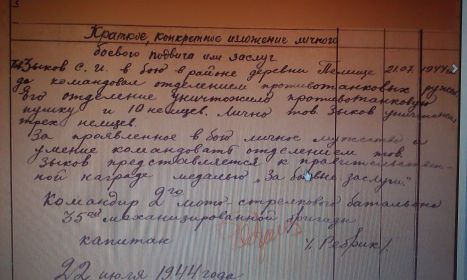 Краткое, конкретное изложение личного
боевого подвига или заслуг
Зыков С. И. в бою в районе деревни 21.07.1944 го
да командовал отделением противотанковых ружей
Его отделение уничтожило противотанковую
пушку и 10 немцев. Лично тов. Зыков уничтожил
трех немцев.
За проявленное в бою личное мужество и
умение командовать отделением тов.
Зыков представляется к правительствен-
ной награде медалью „За боевые заслуги"
Командир 2го мото стрелкового батальона
35ой механизированной бригады
капитан / Ребрик /
22 июля 1944 года